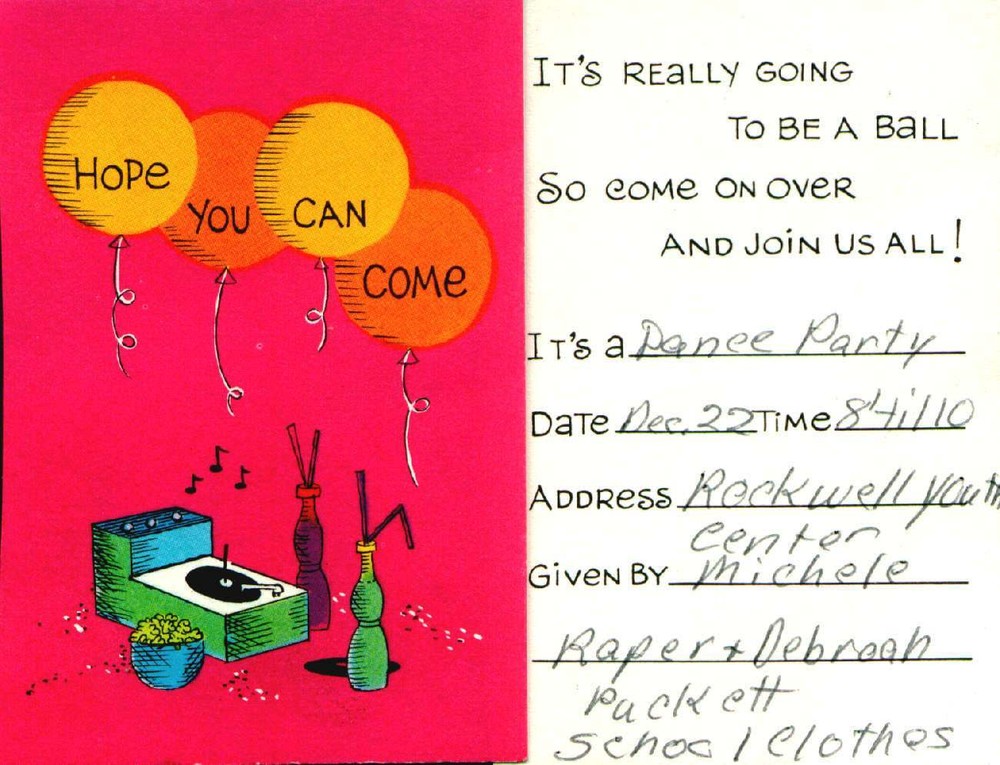 HOPE
YOU
CAN
COME
IT'S REALLY GOING
TO BE A BALL
SO COME ON OVER
AND JOIN US ALL!
IT'S A Dance Party
DATE Dec. 22 TIME 8'til 10
ADDRESS Rockwell Youth
Center
GIVEN BY Michele
Raper + Debroah
Puckett
School Clothes